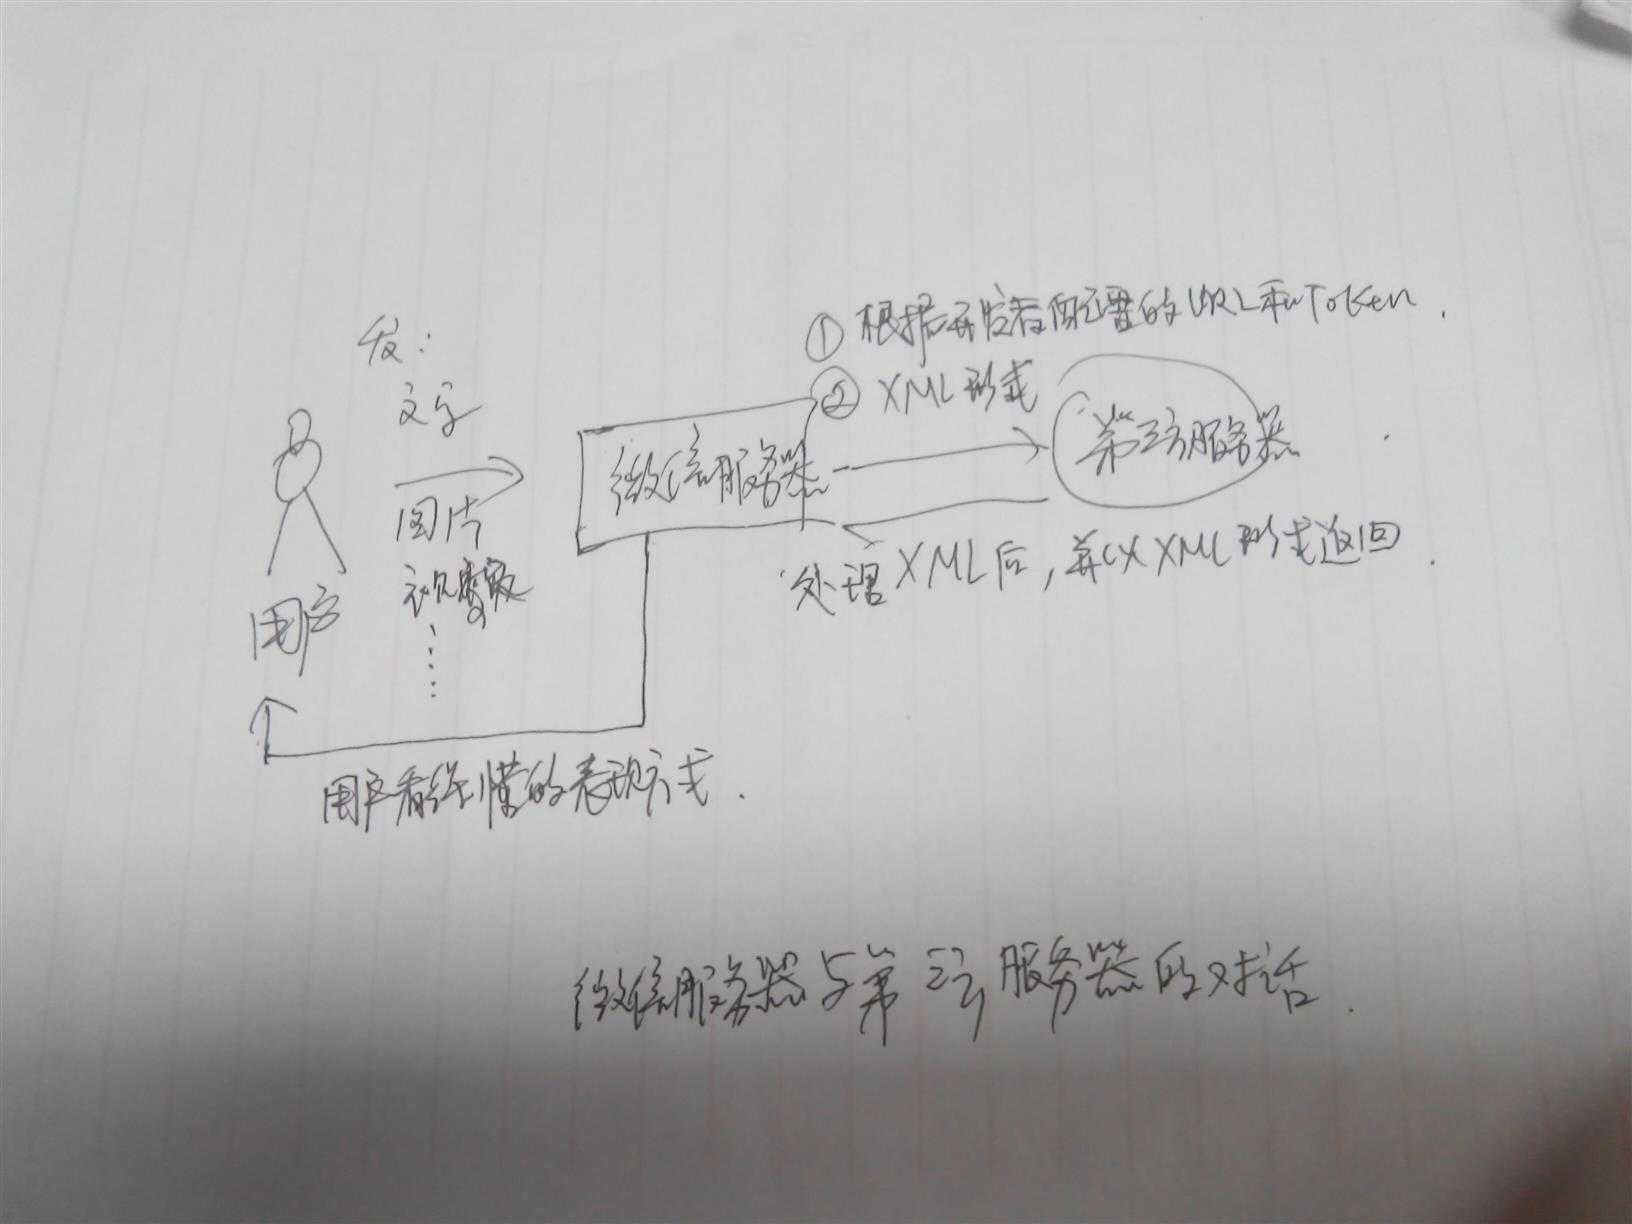 发:
文字
图片
视频
用户
① 根据开发者配置的URL和Token.
② XML形式
微信服务器
第三方服务器
处理XML后,并以XML形式返回.
用户看得懂的表现方式.
微信服务器与第三方服务器的对话.